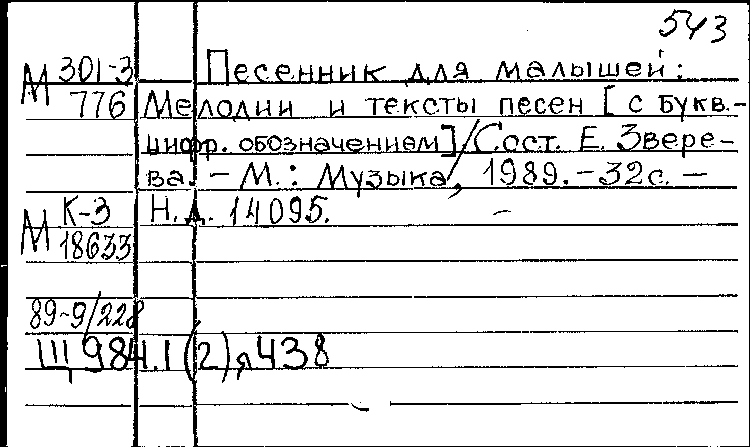 543
М 301-3 Песенник для малышей:
776 Мелодии и тексты песен [с букв.-
цифр. обозначением]/Сост. Е. Звере-
ва. – М.: Музыка, 1989. – 32с. –
М К-3 Н.д. 14095. –
18633
89-9/228
Щ984.1(2)я438